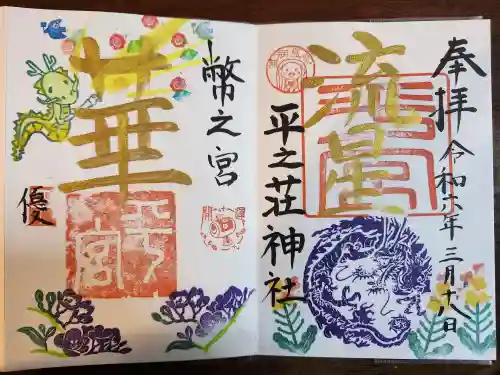 奉拝
令和六年三月十八日
流星
平之荘神社
幣之宮
華
優